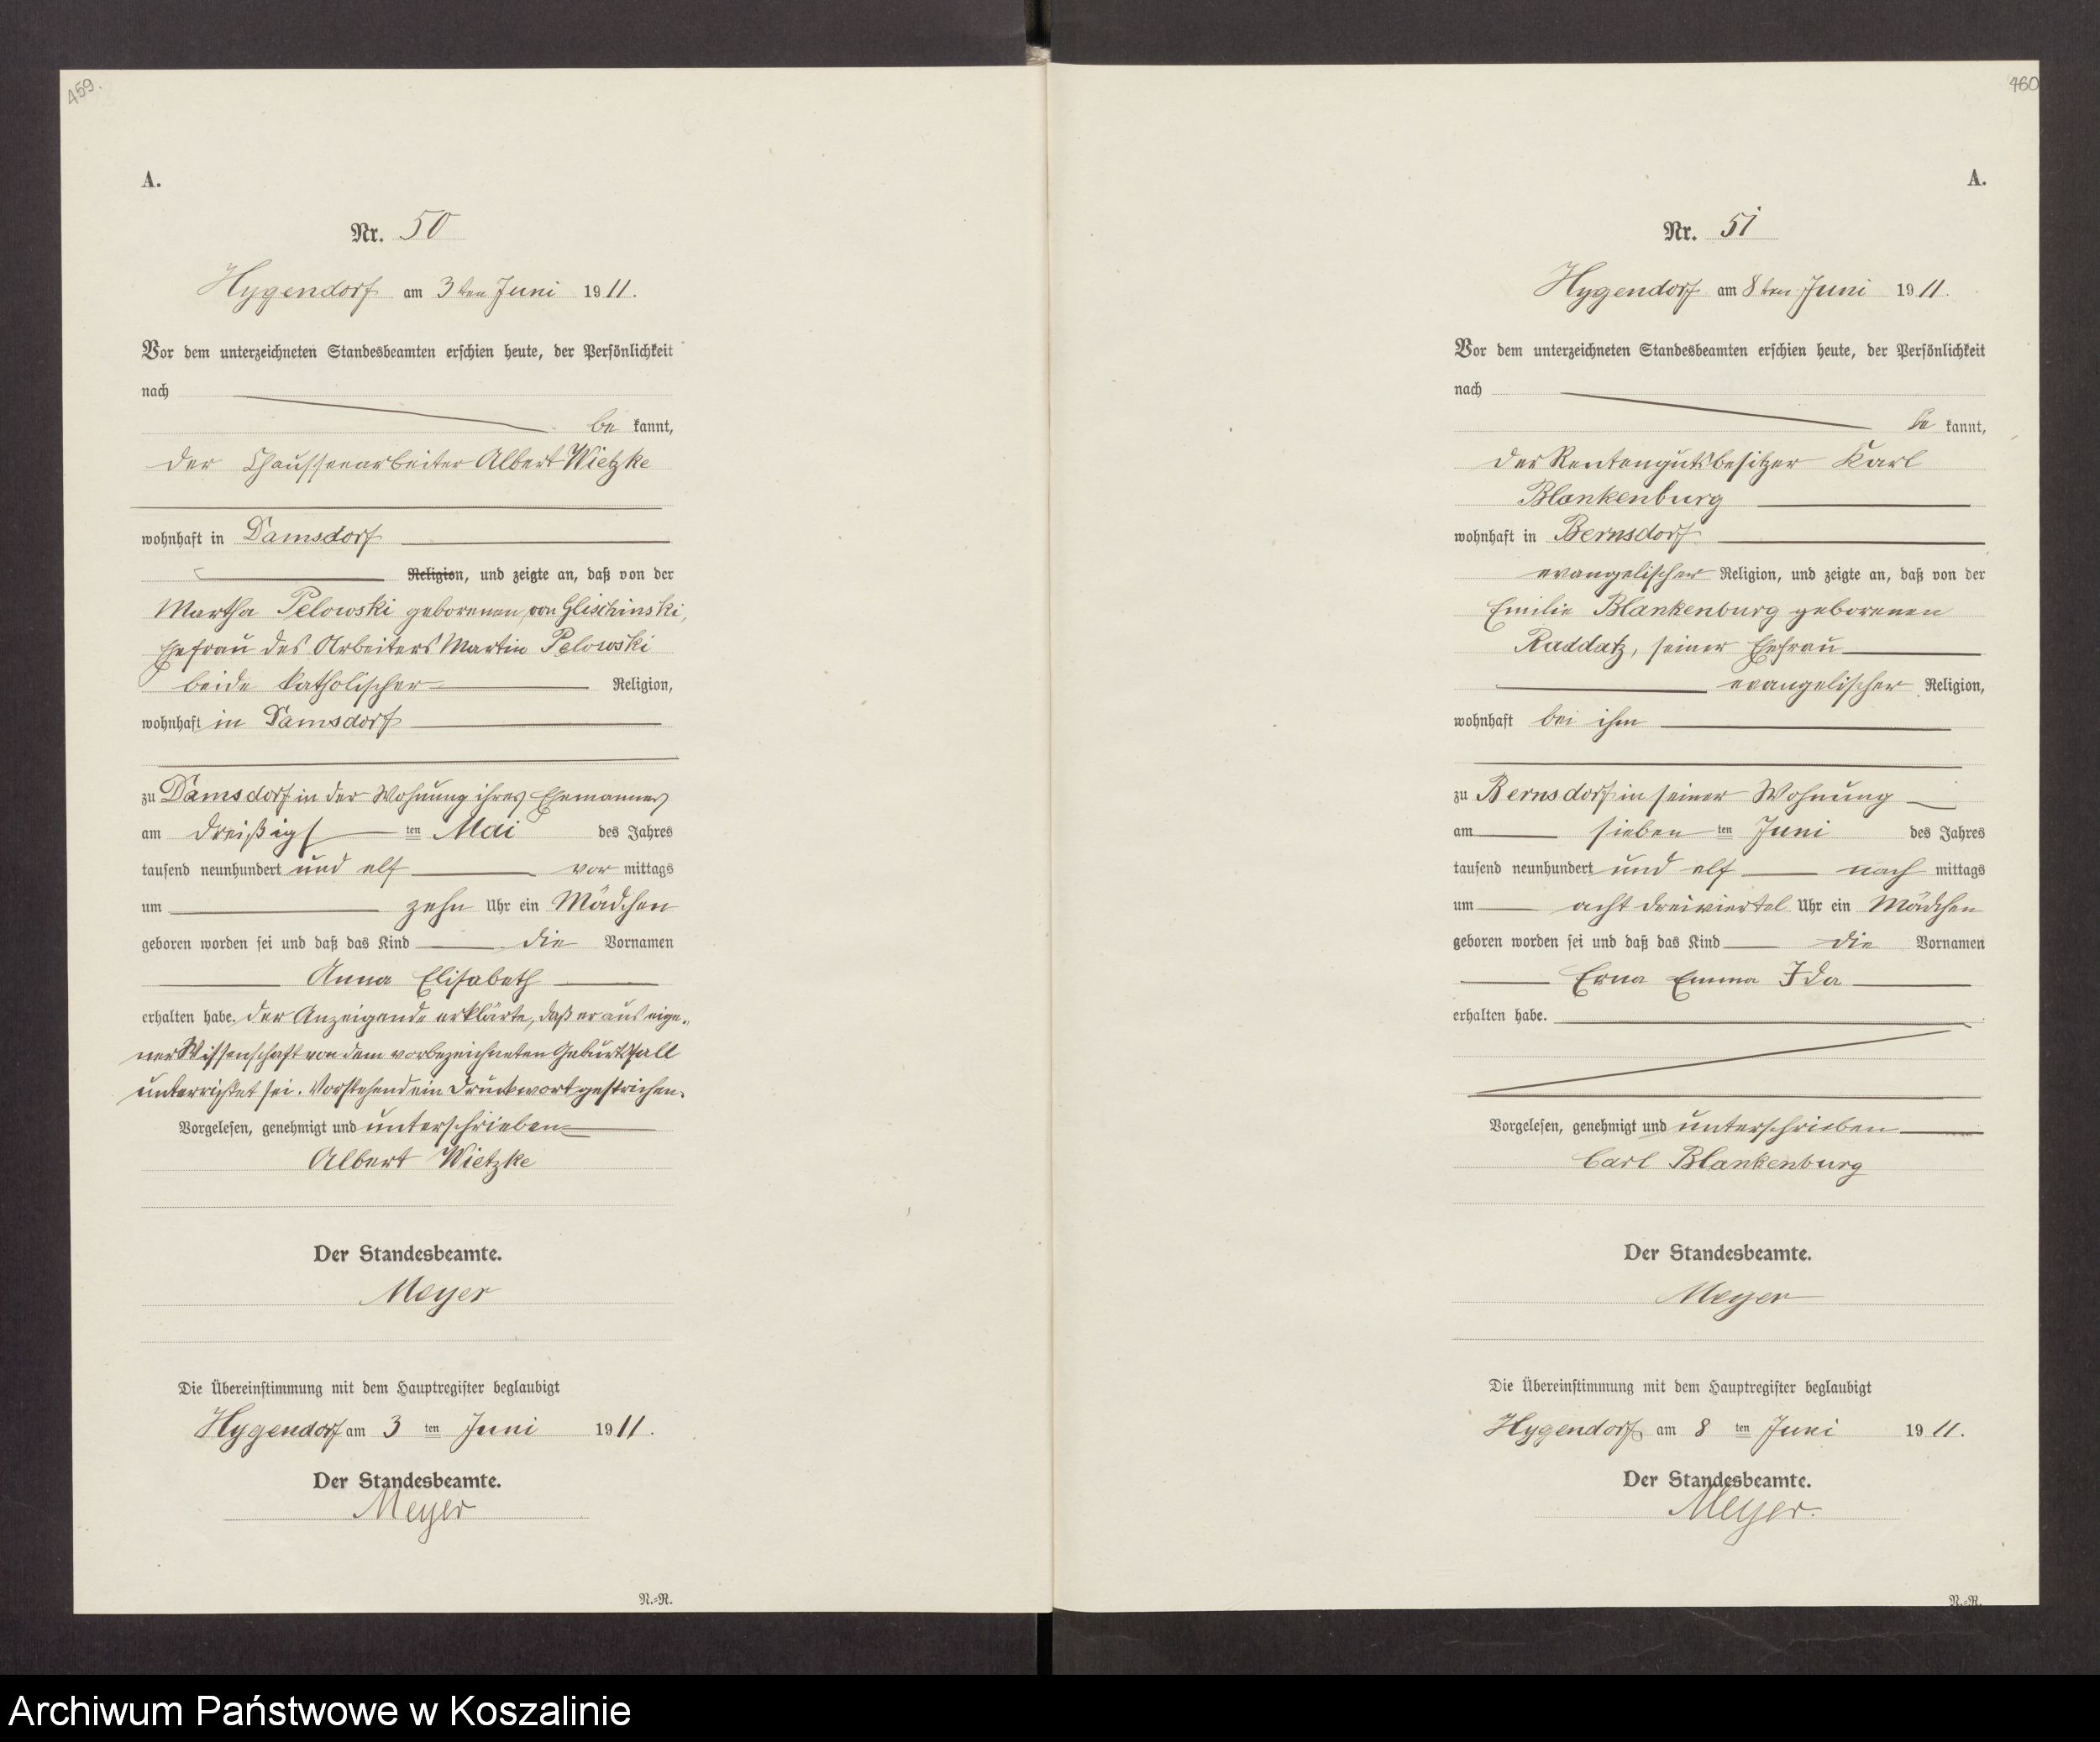 459.
A.
Nr. 50
Hygendorf am 3ten Juni 1911.
Vor dem unterzeichneten Standesbeamten erschien heute, der Persönlichkeit
nach
be kannt,
der Chausseearbeiter Albert Wietzke
wohnhaft in Damsdorf
Religion, und zeigte an, daß von der
Martha Pelowski geborenen von Glischinski,
Ehefrau des Arbeiters Martin Pelowski
beide katholischer Religion,
wohnhaft in Damsdorf
zu Damsdorf in der Wohnung ihres Ehemannes
am dreißigsten Mai des Jahres
tausend neunhundert und elf vor mittags
um zehn Uhr ein Mädchen
geboren worden sei und daß das Kind die Vornamen
Anna Elisabeth
erhalten habe. Der Anzeigende erklärte, daß er aus eige-
ner Wissenschaft von dem vorbezeichneten Geburtsfall
unterrichtet sei. Vorstehend ein Druckwort gestrichen.
Vorgelesen, genehmigt und unterschrieben
Albert Wietzke
Der Standesbeamte.
Meyer
Die Übereinstimmung mit dem Hauptregister beglaubigt
Hygendorf am 3 ten Juni 1911.
Der Standesbeamte.
Meyer
N.=R.
460
A.
Nr. 51
Hygendorf am 8ten Juni 1911.
Vor dem unterzeichneten Standesbeamten erschien heute, der Persönlichkeit
nach
be kannt,
der Rentengutsbesitzer Karl
Blankenburg
wohnhaft in Bernsdorf
evangelischer Religion, und zeigte an, daß von der
Emilie Blankenburg geborenen
Raddatz, seiner Ehefrau
evangelischer Religion,
wohnhaft bei ihm
zu Bernsdorf in seiner Wohnung
am sieben ten Juni des Jahres
tausend neunhundert und elf nach mittags
um acht dreiviertel Uhr ein Mädchen
geboren worden sei und daß das Kind die Vornamen
Erna Emma Ida
erhalten habe.
Vorgelesen, genehmigt und unterschrieben
Carl Blankenburg
Der Standesbeamte.
Meyer
Die Übereinstimmung mit dem Hauptregister beglaubigt
Hygendorf am 8 ten Juni 1911.
Der Standesbeamte.
Meyer.
N.=R.
Archiwum Państwowe w Koszalinie